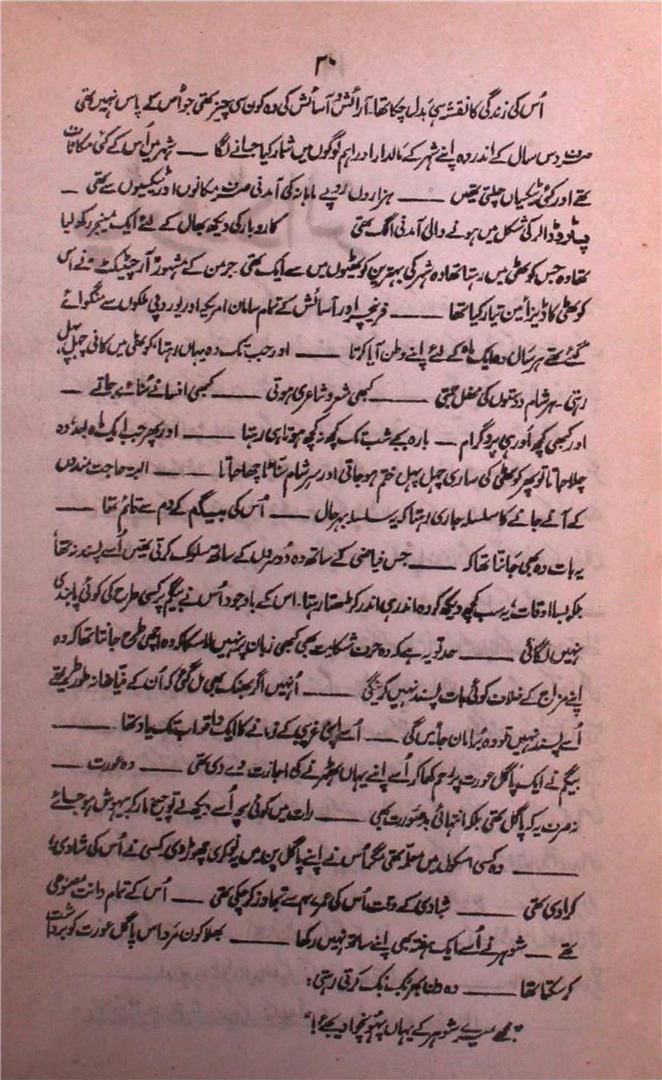 ۳۰
اُس کی زندگی کا نقشہ ہی بدل چکا تھا۔ آرائش و آسائش کی وہ کون سی چیز تھی جو اُس کے پاس نہیں تھی
صرف دس سال کے اندر وہ اپنے شہر کے مالدار اور اہم لوگوں میں شمار کیا جانے لگا —— شہر میں اُس کے کئی مکانات
تھے اور کئی ٹیکسیاں چلتی تھیں —— ہزاروں روپے ماہانہ کی آمدنی صرف مکانوں اور ٹیکسیوں سے تھی —
پٹروڈالر کی شکل میں ہونے والی آمدنی الگ تھی کاروبار کی دیکھ بھال کے لئے ایک منیجر رکھ لیا
تھا وہ جس کوٹھی میں رہتا تھا وہ شہر کی بہترین کوٹھیوں میں سے ایک تھی جرمن کے مشہور آرچٹیکٹ نے اس
کوٹھی کا ڈیزائین تیار کیا تھا —— فرنیچر اور آسائش کے تمام سامان امریکہ اور یوروپی ملکوں سے منگوائے
گئے تھے ہر سال وہ ایک ماہ کے لئے اپنے وطن آیا کرتا —— اور جب تک وہ یہاں رہتا، کوٹھی میں کافی چہل پہل
رہتی۔ ہر شام دوستوں کی محفل جمتی —— کبھی شعر و شاعری ہوتی —— کبھی افسانے سُنائے جاتے —
اور کبھی کچھ اور ہی پروگرام — بارہ بجے شب تک کچھ نہ کچھ ہوتا ہی رہتا —— اور پھر جب ایک ماہ بعد وہ
چلا جاتا تو پھر کوٹھی کی ساری چہل پہل ختم ہو جاتی اور سرِ شام سناٹا چھا جاتا —— البتہ حاجت مندوں
کے آنے جانے کا سلسلہ جاری رہتا کہ یہ سلسلہ بہر حال —— اُس کی بیگم کے دم سے قائم تھا —
یہ بات وہ بھی جانتا تھا کہ —— جس فیاضی کے ساتھ وہ دوسروں کے ساتھ سلوک کرتی تھیں اُسے پسند نہ تھا
بلکہ بسا اوقات یہ سب کچھ دیکھ کر وہ اندر ہی اندر کُڑھتا رہتا۔ اس کے باوجود اُس نے بیگم پر کسی طرح کی کوئی پابندی
نہیں لگائی —— حد تو یہ ہے کہ وہ حرفِ شکایت بھی کبھی زبان پر نہیں لا سکا کہ وہ اچھی طرح جانتا تھا کہ وہ
اپنے مزاج کے خلاف کوئی بات پسند نہیں کریگی —— اُنہیں اگر بھنک بھی مل گئی کہ اُن کے فیاضانہ طور طریقے
اُسے پسند نہیں تو وہ بُرا مان جائیں گی —— اُسے اپنی غریبی کے زمانے کا ایک واقعہ اب تک یاد تھا ——
بیگم نے ایک پاگل عورت پر رحم کھا کر اُسے اپنے یہاں ٹھہرنے کی اجازت دے دی تھی —— وہ عورت —
نہ صرف یہ کہ پاگل تھی بلکہ انتہائی بدصورت بھی —— رات میں کوئی بچہ اُسے دیکھ لے تو چیخ مار کر بیہوش ہو جائے
—— وہ کسی اسکول میں معلمہ تھی مگر اُس نے اپنے پاگل پن میں نوکری چھوڑ دی کسی نے اُس کی شادی
کرا دی تھی —— شادی کے وقت اُس کی عمر ۳۰ سے تجاوز کر چکی تھی — اُس کے تمام دانت مصنوعی
تھے — شوہر نے اُسے ایک ہفتہ بھی اپنے ساتھ نہیں رکھا —— بھلا کون مرد اس پاگل عورت کو برداشت
کر سکتا تھا —— وہ دن بھر بک بک کرتی رہتی:
"مجھے میرے شوہر کے یہاں پہونچا دیجئے!"